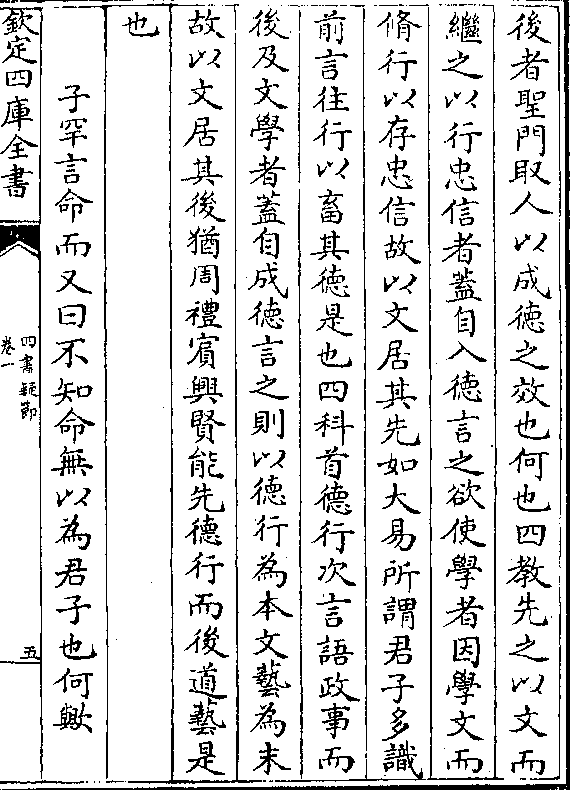 後者聖門取人以成德之效也何也四教先之以文而
繼之以行忠信者蓋自入德言之欲使學者因學文而
脩行以存忠信故以文居其先如大易所謂君子多識
前言往行以畜其德是也四科首德行次言語政事而
後及文學者蓋自成德言之則以德行為本文藝為末
故以文居其後猶周禮賔興賢能先德行而後道藝是
也
子罕言命而又曰不知命無以為君子也何歟
欽定四庫全書
四書疑節
卷一
五